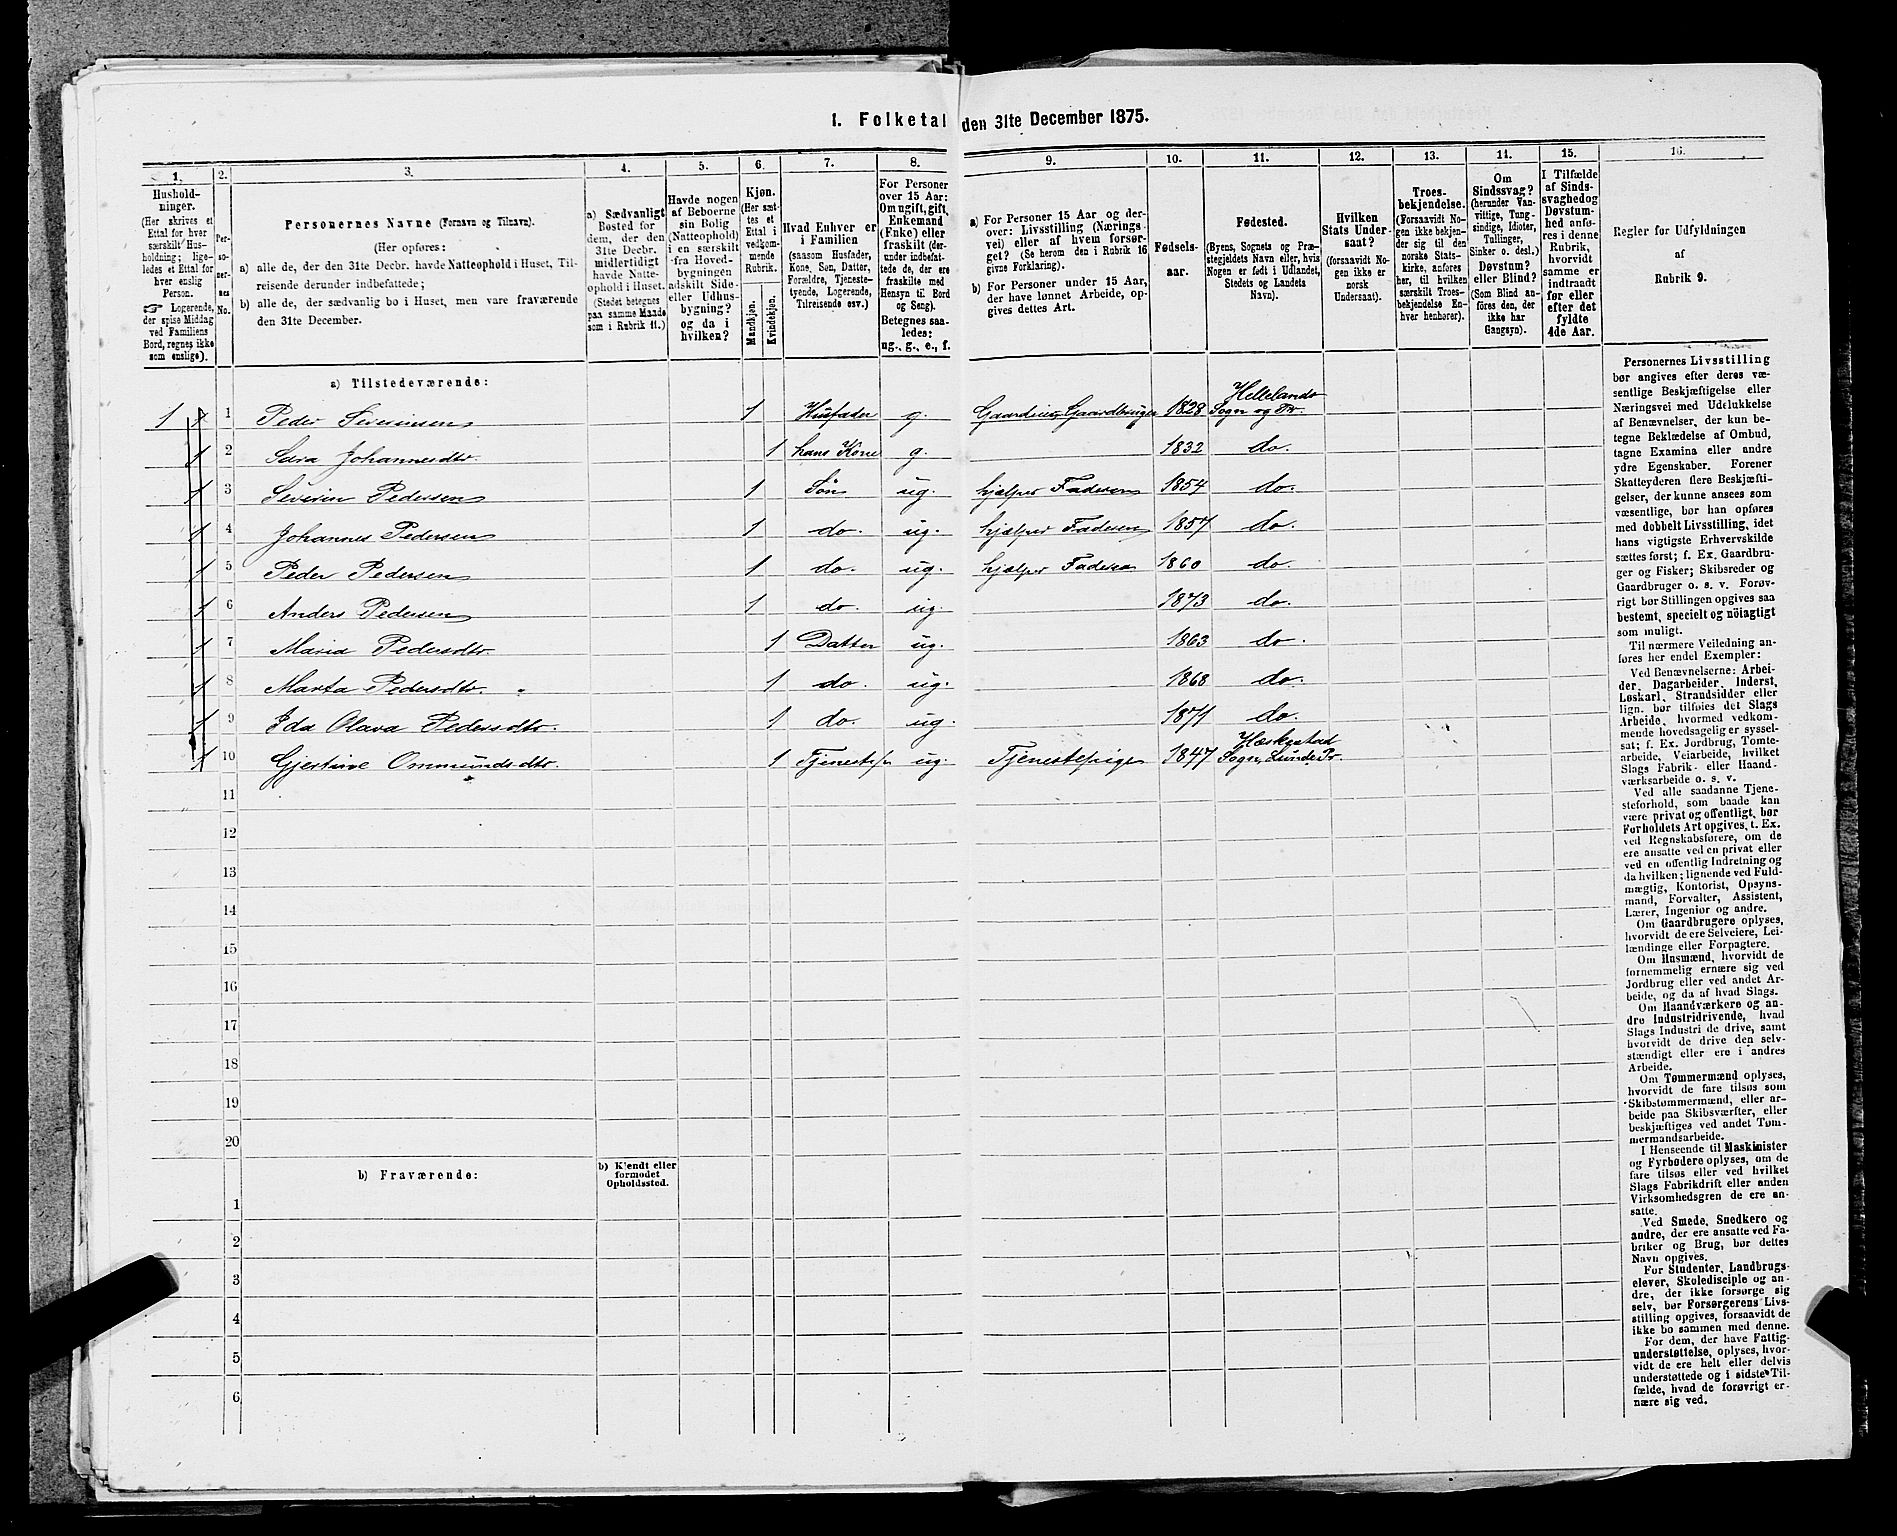 1. Folketal den 31te December 1875.
1. 2. 3. 4. 5. 6. 7. 8. 9. 10. 11. 12. 13. 14. 15. 16.
Hushold-
ninger.
(Her skrives et
Ettal for hver
særskilt Hus-
holdning; lige-
ledes et Ettal for
hver enslig
Person.
☞ Logerende,
der spise Middag
ved Familiens
Bord, regnes ikke
som enslige).
Per-
so-
ner-
nes
No.
Personernes Navne (Fornavn og Tilnavn).
(Her opføres:
a) alle de, der den 31te Decbr. havde Natteophold i Huset, Til-
reisende derunder indbefattede;
b) alle de, der sædvanlig bo i Huset, men vare fraværende
den 31te December.
a) Sædvanligt
Bosted for
dem, der den
31te Decbr.
midlertidigt
havde Natte-
ophold i Huset.
(Stedet betegnes
paa samme Maade
som i Rubrik 11.)
Havde nogen
af Beboerne
sin Bolig
(Natteophold)
i en særskilt
fra Hoved-
bygningen
adskilt Side-
eller Udhus-
bygning?
og da i
hvilken?
Kjøn.
(Her sæt-
tes et
Ettal i
vedkom-
mende
Rubrik.
Mandkjøn.
Kvindekjøn.
Hvad Enhver er
i Familien
(saasom Husfader,
Kone, Søn, Datter,
Forældre, Tjeneste-
tyende, Logerende,
Tilreisende osv.)
For Personer
over 15 Aar:
Om ugift, gift,
Enkemand
(Enke) eller
fraskilt (der-
under indbefat-
tede de, der ere
fraskilte med
Hensyn til Bord
og Seng).
Betegnes saa-
ledes:
ug., g., e., f.
a) For Personer 15 Aar og der-
over: Livsstilling (Nærings-
vei) eller af hvem forsør-
get? (Se herom den i Rubrik 16
givne Forklaring).
b) For Personer under 15 Aar,
der have lønnet Arbeide, op-
gives dettes Art.
Fødsels-
aar.
Fødested.
(Byens, Sognets og Præ-
stegjeldets Navn eller, hvis
Nogen er født i Udlandet,
Stedets og Landets
Navn).
Hvilken
Stats Under-
saat?
(forsaavidt No-
gen ikke er
norsk
Undersaat).
Troes-
bekjendelse.
(Forsaavidt No-
gen ikke bekjen-
der sig til den
norske Stats-
kirke, anføres
her, til hvilken
særskilt Troes-
bekjendelse En-
hver henhører).
Om
Sindssvag?
(herunder Van-
vittige, Tung-
sindige, Idioter,
Tullinger,
Sinker o. desl.)
Døvstum?
eller Blind?
(Som Blind an-
føres den, der
ikke har
Gangsyn).
I Tilfælde
af Sinds-
svaghed og
Døvstum-
hed anfø-
res i denne
Rubrik,
hvorvidt
samme er
indtraadt
før eller
efter det
fyldte
4de Aar.
Regler for Udfyldningen
af
Rubrik 9.
a) Tilstedeværende:
1 1 Peder Severinsen 1 Husfader g. Gaardeier, Gaardbruger 1828 Hellelands
Sogn og Pr.
1 2 Sara Johannesdtr. 1 hans Kone g. 1832 do.
1 3 Severin Pedersen 1 Søn ug. hjælper Faderen 1854 do.
1 4 Johannes Pedersen 1 do. ug. hjælper Faderen 1857 do.
1 5 Peder Pedersen 1 do. ug. hjælper Faderen 1860 do.
1 6 Anders Pedersen 1 do. ug. 1873 do.
1 7 Maria Pedersdtr. 1 Datter ug. 1863 do.
1 8 Marta Pedersdtr. 1 do. ug. 1868 do.
1 9 Ida Olava Pedersdtr. 1 do. ug. 1871 do.
1 10 Gjertine Ommundsdtr. 1 Tjenestep. ug. Tjenestepige 1847 Heskestad
Sogn, Lunde Pr.
11
12
13
14
15
16
17
18
19
20
b) Fraværende:
b) Kjendt eller
formodet
Opholdssted.
1
2
3
4
5
6
Personernes Livsstilling
bør angives efter deres væ-
sentlige Beskjæftigelse eller
Næringsvei med Udelukkelse
af Benævnelser, der kun be-
tegne Beklædelse af Ombud,
tagne Examina eller andre
ydre Egenskaber. Forener
Skatteyderen flere Beskjæfti-
gelser, der kunne ansees som
væsentlige, bør han opføres
med dobbelt Livsstilling, idet
hans vigtigste Erhvervskilde
sættes først; f. Ex. Gaardbru-
ger og Fisker; Skibsreder og
Gaardbruger o. s. v. Forøv-
rigt bør Stillingen opgives saa
bestemt, specielt og nöiagtigt
som muligt.
Til nærmere Veiledning an-
føres her endel Exempler:
Ved Benævnelserne: Arbei-
der, Dagarbeider, Inderst,
Løskarl, Strandsidder eller
lign. bør tilføies det Slags
Arbeide, hvormed vedkom-
mende hovedsagelig er syssel-
sat; f. Ex. Jordbrug, Tomte-
arbeide, Veiarbeide, hvilket
Slags Fabrik- eller Haand-
værksarbeide o. s. v.
Ved alle saadanne Tjene-
steforhold, som baade kan
være privat og offentligt, bør
Forholdets Art opgives, t. Ex.
ved Regnskabsførere, om de
ere ansatte ved en privat eller
ved en offentlig Indretning og
da hvilken; lignende ved Fuld-
mægtig, Kontorist, Opsyns-
mand, Forvalter, Assistent,
Lærer, Ingeniør og andre.
Om Gaardbrugere oplyses,
hvorvidt de ere Selveiere, Lei-
lændinge eller Forpagtere.
Om Husmænd, hvorvidt de
fornemmelig ernære sig ved
Jordbrug eller ved andet Ar-
beide, og da af hvad Slags.
Om Haandværkere og an-
dre Industridrivende, hvad
Slags Industri de drive, samt
hvorvidt de drive den selv-
stændigt eller ere i andres
Arbeide.
Om Tømmermænd oplyses,
hvorvidt de fare tilsøs som
Skibstømmermænd, eller ar-
beide paa Skibsværfter, eller
beskjæftiges ved andet Tøm-
mermandsarbeide.
I Henseende til Maskinister
og Fyrbødere oplyses, om de
fare tilsøs eller ved hvilket
Slags Fabrikdrift eller anden
Virksomhedsgren de ere an-
satte.
Ved Smede, Snedkere og
andre, der ere ansatte ved Fa-
briker og Brug, bør dettes
Navn opgives.
For Studenter, Landbrugs-
elever, Skoledisciple og an-
dre, der ikke forsørge sig
selv, bør Forsørgerens Livs-
stilling opgives, forsaavidt de
ikke bo sammen med denne.
For dem, der have Fattig-
understøttelse, oplyses, hvor-
vidt de ere helt eller delvis
understøttede og i sidste Til-
fælde, hvad de forøvrigt er-
nære sig ved.